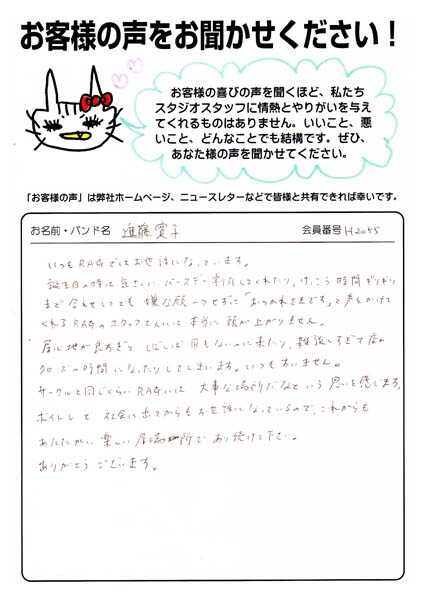 お客様の声をお聞かせください！
お客様の喜びの声を聞くほど、私たち
スタジオスタッフに情熱とやりがいを与え
てくれるものはありません。いいこと、悪
いこと、どんなことでも結構です。ぜひ、
あなた様の声を聞かせてください。
「お客様の声」は弊社ホームページ、ニュースレターなどで皆様と共有できれば幸いです。
お名前・バンド名 進藤 愛子 会員番号 H2055
いつもRAGではお世話になっています。
誕生日の時は バースデー割引してくれたり、けっこう時間ギリギリ
まで 嫌な顔一つせずに「おつかれさまです」と声をかけて
くれるRAGのスタッフさんには本当に頭が上がりません。
居心地が良すぎて 用もないのに来たり、雑談しすぎて店の
クローズの時間になったりしてしまいます。いつもすいません。
サークルと同じくらいRAGには 大事な場所だなという思いを感じます。
社会に出てからもお世話になっているので、これからも
あたたかい楽しい居場所であり続けて下さい。
ありがとうございます。